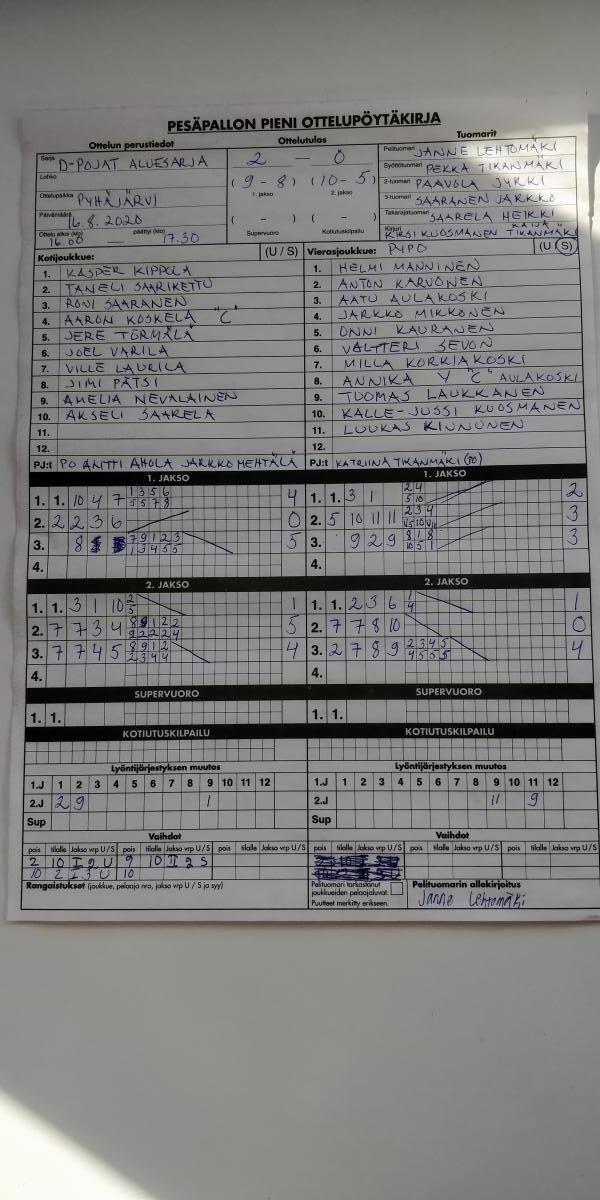 PESÄPALLON PIENI OTTELUPÖYTÄKIRJA
Ottelun perustiedot
Ottelutulos
Tuomarit
Sarja D-POJAT ALUESARJA
Lohko
Ottelupaikka PYHÄJÄRVI
Päivämäärä 16.8.2020
Ottelu alkoi (klo) 16.00 päättyi (klo) 17.30
2 — 0
(9-8) (10-5)
1. jakso 2. jakso
( - ) ( - )
Supervuoro Kotiutuskilpailu
Pelituomari JANNE LEHTOMÄKI
Syöttötuomari PEKKA TIKANMÄKI
2-tuomari PAAVOLA JYRKI
3-tuomari SAARANEN JARKKO
Takarajatuomari SAARELA HEIKKI
Kirjuri KIRSI KUOSMANEN KAIJA TIKANMÄKI
Kotijoukkue: (U / S)
1. KASPER KIPPOLA
2. TANELI SAARIKETTU
3. RONI SAARANEN
4. AARON KOSKELA "C"
5. JERE TÖRMÄLÄ
6. JOEL VARILA
7. VILLE LAURILA
8. JIMI PÄTSI
9. AMELIA NEVALAINEN
10. AKSELI SAARELA
11.
12.
PJ:t PO ANTTI AHOLA JARKKO MEHTÄLÄ
Vierasjoukkue: PYPO (U / S)
1. HELMI MANNINEN
2. ANTON KARVONEN
3. AATU AULAKOSKI
4. JARKKO MIKKONEN
5. ONNI KAURANEN
6. VALTTERI SEVON
7. MILLA KORKIAKOSKI
8. ANNIKA Y "C" AULAKOSKI
9. TUOMAS LAUKKANEN
10. KALLE-JUSSI KUOSMANEN
11. LUUKAS KINNUNEN
12.
PJ:t KATRIINA TIKANMÄKI (PO)
1. JAKSO
1. 1. 10 4 7 1 3 5 6 4
5 5 7 8
2. 2 2 3 6 0
3. 8 7 9 1 2 3 5
1 3 4 5 5
4.
2. JAKSO
1. 1. 3 1 10 2 1
5
2. 7 7 3 4 8 9 1 2 2 5
9 2 2 2 4
3. 7 7 4 5 8 9 1 2 4
2 3 4 4
4.
SUPERVUORO
1. 1.
KOTIUTUSKILPAILU
1. JAKSO
1. 1. 3 1 2 4 2
5 10
2. 5 10 11 11 2 3 4 3
3. 9 2 9 8 1 8 3
10 5 1
4.
2. JAKSO
1. 1. 2 3 6 1 1
4
2. 7 7 8 10 0
3. 2 7 8 9 2 3 4 5 4
4 5 5 5
4.
SUPERVUORO
1. 1.
KOTIUTUSKILPAILU
Lyöntijärjestyksen muutos
1.J 1 2 3 4 5 6 7 8 9 10 11 12
2.J 2 9 1
Sup
Lyöntijärjestyksen muutos
1.J 1 2 3 4 5 6 7 8 9 10 11 12
2.J 11 9
Sup
Vaihdot
pois tilalle Jakso vrp U/S pois tilalle Jakso vrp U/S pois tilalle Jakso vrp U/S
2 10 I 2 U 9 10 II 2 S
10 2 I 3 U 10
Rangaistukset (joukkue, pelaaja nro, jakso vrp U / S ja syy)
Vaihdot
pois tilalle Jakso vrp U/S pois tilalle Jakso vrp U/S pois tilalle Jakso vrp U/S
Pelituomari tarkastanut
joukkueiden pelaajaluvat.
Puutteet merkitty erikseen.
Pelituomarin allekirjoitus
Janne Lehtomäki